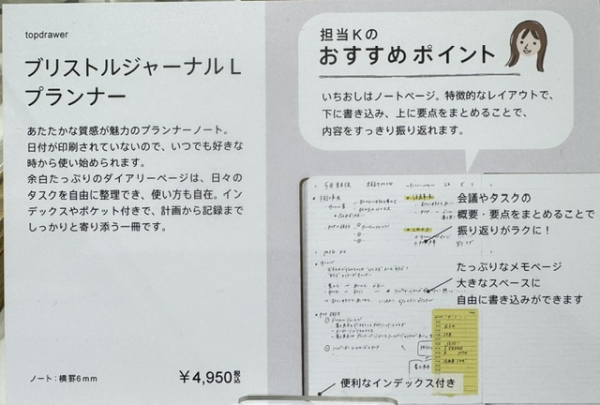 topdrawer
ブリストルジャーナル L
プランナー
あたたかな質感が魅力のプランナーノート。
日付が印刷されていないので、いつでも好きな
時から使い始められます。
余白たっぷりのダイアリーページは、日々の
タスクを自由に整理でき、使い方も自在。イン
デックスやポケット付きで、計画から記録まで
しっかりと寄り添う一冊です。
ノート：横罫6mm
¥4,950税込
担当Kの
おすすめポイント
いちおしはノートページ。特徴的なレイアウトで、
下に書き込み、上に要点をまとめることで、
内容をすっきり振り返れます。
会議やタスクの
概要・要点をまとめることで
振り返りがラクに！
たっぷりなメモページ
大きなスペースに
自由に書き込みができます
便利なインデックス付き